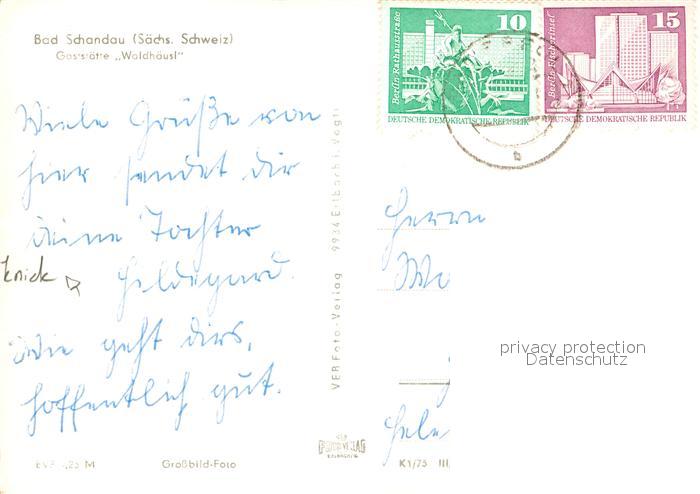 Bad Schandau (Sächs. Schweiz)
Gaststätte „Waldhäusl"
Viele Grüße von
hier sendet dir
deine Tochter
Hildegard.
Wie geht dirs,
hoffentlich gut.
knick
EVP -,25 M
Großbild-Foto
VEB Foto-Verlag 9934 Erlbach i. Vogtl
K1/75 III
10
Berlin, Rathausstraße
DEUTSCHE DEMOKRATISCHE REPUBLIK
15
Berlin, Fischerinsel
DEUTSCHE DEMOKRATISCHE REPUBLIK
Herrn
privacy protection
Datenschutz